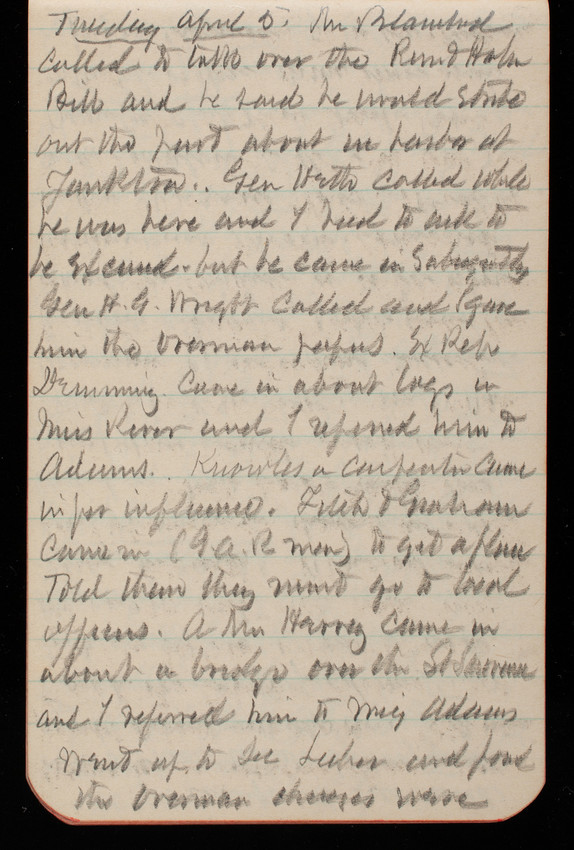 Tuesday April 5. Mr Blanchard
called to talk over the
Bill and he said he would strike
out the part about in harbor at
Yankton.. Gen Vietts called while
he was here and I had to ask to
be excused. but he came in Subsequently
Gen H. G. Wright Called and I gave
him the Overman papers. Ex Rep
Demming Came in about logs in
Miss River and I referred him to
Adams.. Knowles a carpenter came
in for influence. Fitch & Graham
came in (G A. R men) to get a place
Told them they must go to local
officers. A Mr Harvey came in
about a bridge over the St Lawrence
and I referred him to Maj Adams
Went up to See Lieber and find
the Overman charges were